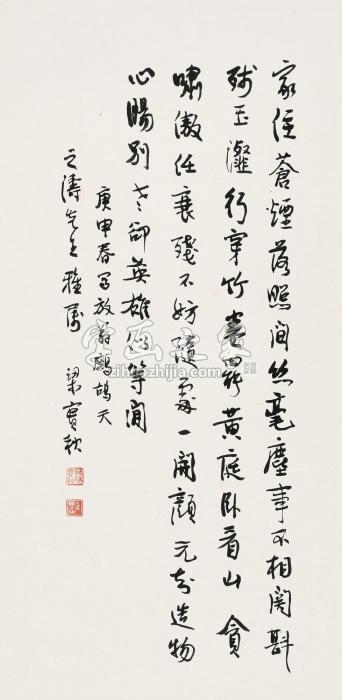 家住蒼煙落照間絲毫塵事不相關斟
殘玉瀣行穿竹卷罷黃庭卧看山貪
嘯傲任衰殘不妨隨處一開顏元知造物
心腸別老卻英雄似等閒
庚申春寫放翁鷓鴣天
之濤先生雅屬 梁實秋
字画之家
zihuazhijia.com